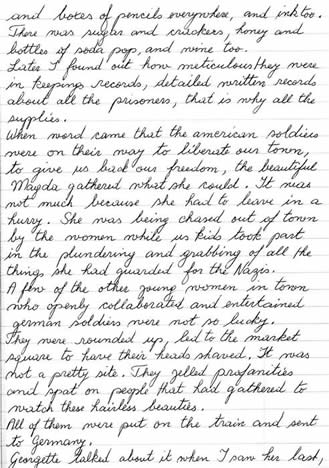 and boxes of pencils everywhere, and ink too.
There was sugar and crackers, honey and
bottles of soda pop, and wine too.
Later I found out how meticulous they were
in keepings records, detailed written records
about all the prisoners, that is why all the
supplies.
When word came that the american soldiers
were on their way to liberate our town,
to give us back our freedom, the beautiful
Magda gathered what she could. It was
not much because she had to leave in a
hurry. She was being chased out of town
by the women while us kids took part
in the plundering and grabbing of all the
things she had guarded for the Nazis.
A few of the other young women in town
who openly collaborated and entertained
german soldiers were not so lucky.
They were rounded up, led to the market
square to have their heads shaved. It was
not a pretty site. They yelled profanities
and spat on people that had gathered to
watch these hairless beauties.
All of them were put on the train and sent
to Germany.
Georgette talked about it when I saw her last,